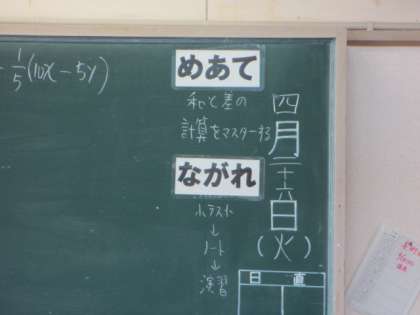 1/5(10x-5y)
めあて
和と差の
計算をマスターする
ながれ
小テスト
↓
ノート
↓
演習
四月二十六日(火)
日直